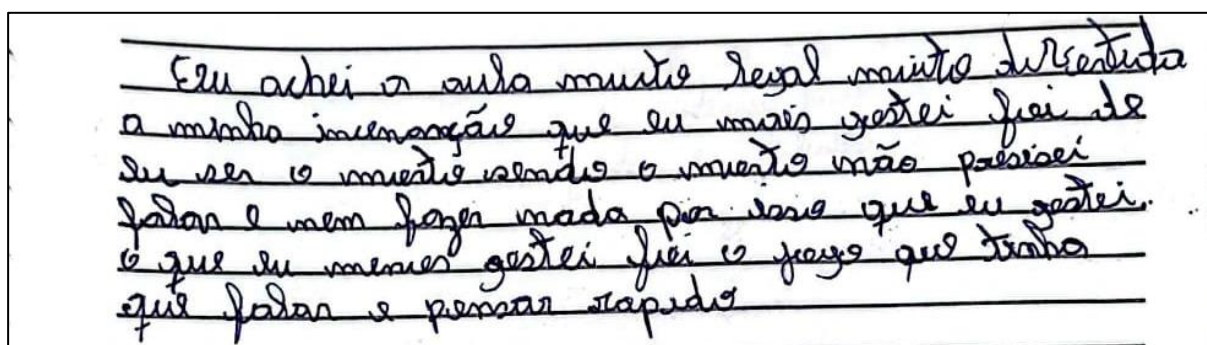 Eu achei a aula muito legal muito divertida
a minha incenanção que eu mais gostei foi de
eu ser o morto sendo o morto não presisei
falar e nem fazer nada por isso que eu gostei.
o que eu menos gostei foi o jogo que tinha
que falar e pensar rapido